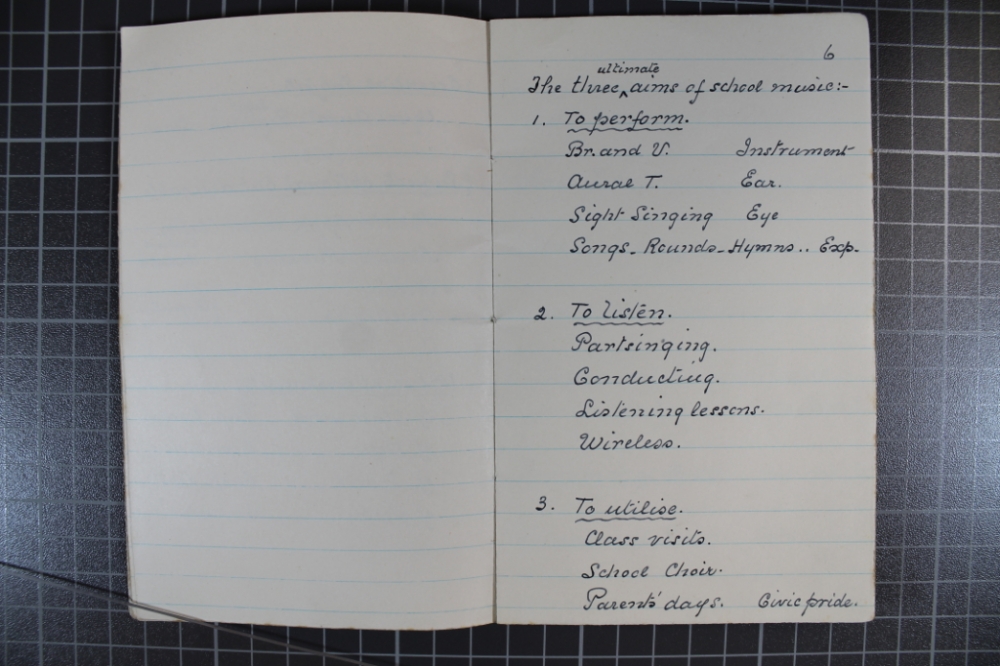 6
The three ultimate aims of school music:-
1. To perform.
Br. and V. Instrument
Aural T. Ear.
Sight Singing Eye
Songs - Rounds - Hymns .. Exp.
2. To listen.
Partsinging.
Conducting.
Listening lessons.
Wireless.
3. To utilise.
Class visits.
School Choir.
Parents' days. Civic pride.